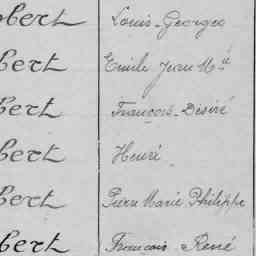 obert Louis-Georges
bert Emile Jean Mie
bert François-Désiré
bert Henri
bert Pierre Marie Philippe
bert François René